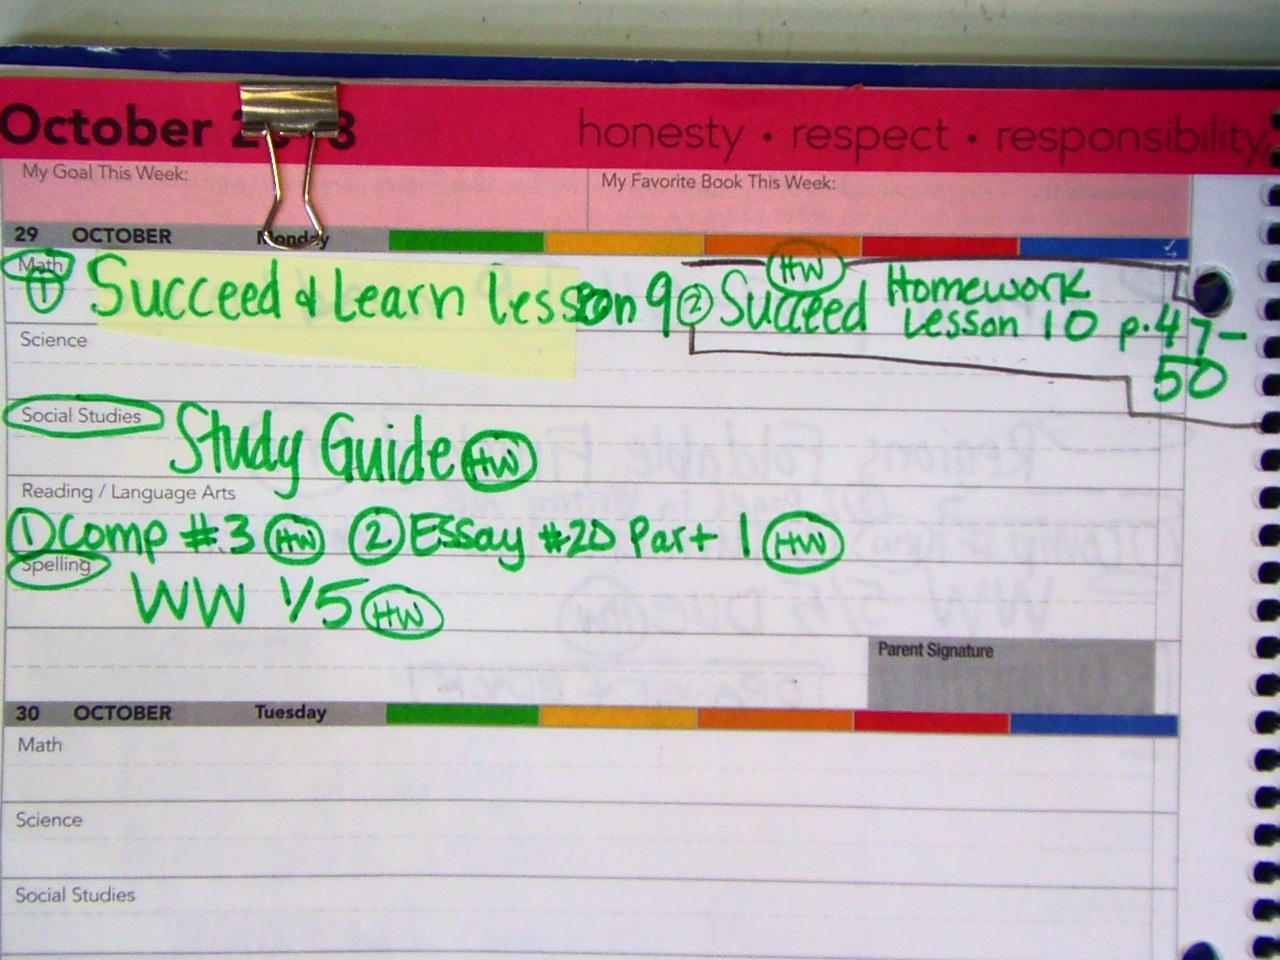 October 2 8
honesty • respect • responsibility,
My Goal This Week:
My Favorite Book This Week:
29 OCTOBER Monday
Math
① Succeed & Learn Lesson 9 ② Succeed Homework HW
Lesson 10 p.47-
50
Science
Social Studies
Study Guide HW
Reading / Language Arts
① Comp #3 HW ② Essay #20 Part 1 HW
Spelling
WW 1/5 HW
Parent Signature
30 OCTOBER Tuesday
Math
Science
Social Studies